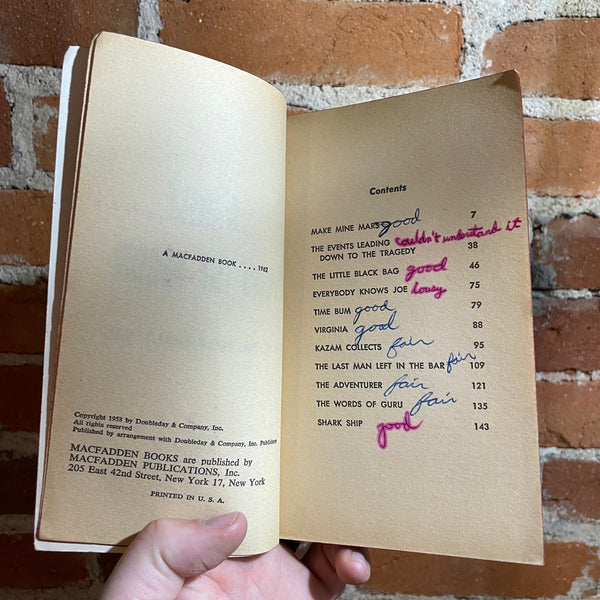 A MACFADDEN BOOK . . . . 1962
Copyright 1958 by Doubleday & Company, Inc.
All rights reserved
Published by arrangement with Doubleday & Company, Inc. Publishers
MACFADDEN BOOKS are published by
MACFADDEN PUBLICATIONS, Inc.
205 East 42nd Street, New York 17, New York
PRINTED IN U. S. A.
Contents
MAKE MINE MARS good 7
THE EVENTS LEADING couldn't understand it
DOWN TO THE TRAGEDY 38
THE LITTLE BLACK BAG good 46
EVERYBODY KNOWS JOE lousy 75
TIME BUM good 79
VIRGINIA good 88
KAZAM COLLECTS fair 95
THE LAST MAN LEFT IN THE BAR fair 109
THE ADVENTURER fair 121
THE WORDS OF GURU fair 135
SHARK SHIP good 143